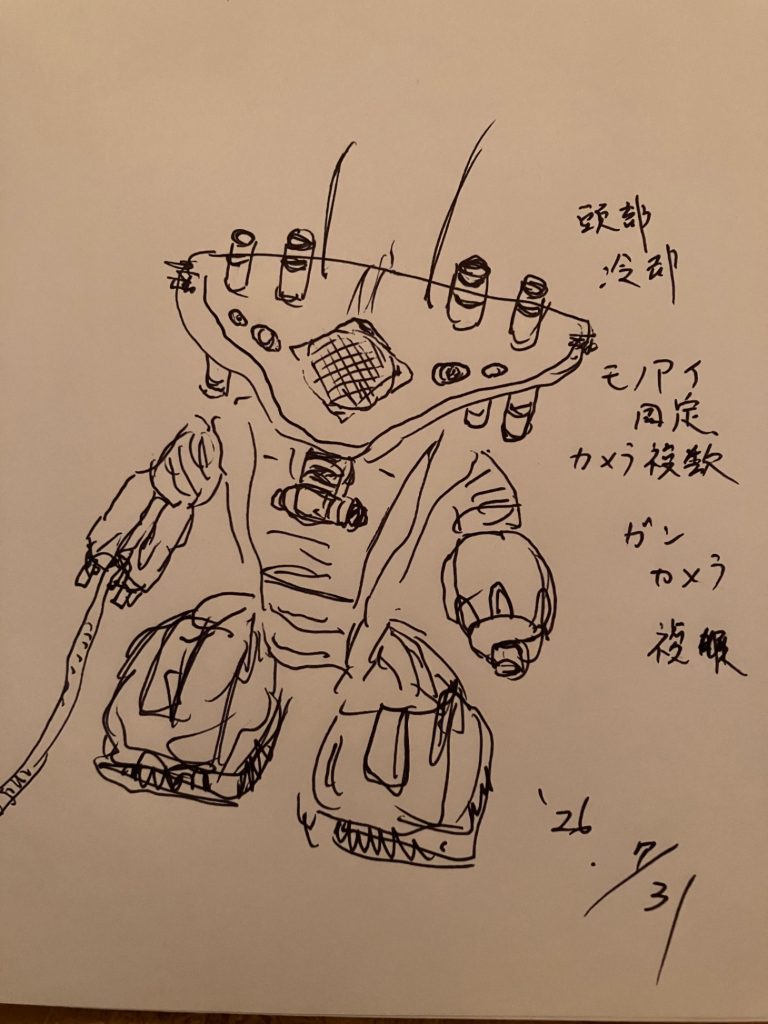 頭部
冷却
モノアイ
固定
カメラ複数
ガン
カメラ
複眼
'26
7/31